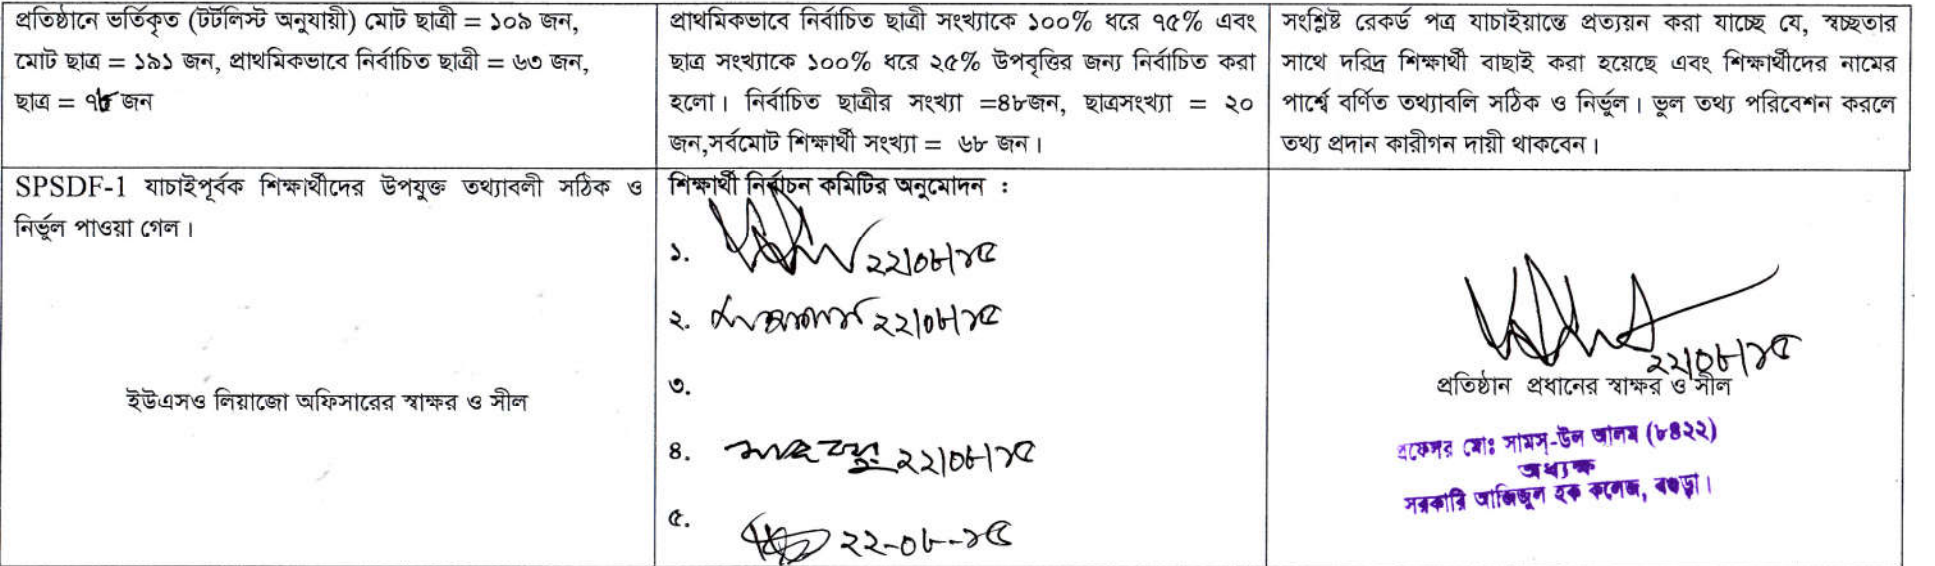 প্রতিষ্ঠানে ভর্তিকৃত (টটলিস্ট অনুযায়ী) মোট ছাত্রী = ১০৯ জন,
মোট ছাত্র = ১৯১ জন, প্রাথমিকভাবে নির্বাচিত ছাত্রী = ৬৩ জন,
ছাত্র = জন
প্রাথমিকভাবে নির্বাচিত ছাত্রী সংখ্যাকে ১০০% ধরে ৭৫% এবং
ছাত্র সংখ্যাকে ১০০% ধরে ২৫% উপবৃত্তির জন্য নির্বাচিত করা
হলো। নির্বাচিত ছাত্রীর সংখ্যা =৪৮জন, ছাত্রসংখ্যা = ২০
জন,সর্বমোট শিক্ষার্থী সংখ্যা = ৬৮ জন।
সংশ্লিষ্ট রেকর্ড পত্র যাচাইয়ান্তে প্রত্যয়ন করা যাচ্ছে যে, স্বচ্ছতার
সাথে দরিদ্র শিক্ষার্থী বাছাই করা হয়েছে এবং শিক্ষার্থীদের নামের
পার্শ্বে বর্ণিত তথ্যাবলি সঠিক ও নির্ভুল। ভুল তথ্য পরিবেশন করলে
তথ্য প্রদান কারীগন দায়ী থাকবেন।
SPSDF-1 যাচাইপূর্বক শিক্ষার্থীদের উপযুক্ত তথ্যাবলী সঠিক ও
নির্ভুল পাওয়া গেল।
ইউএসও লিয়াজো অফিসারের স্বাক্ষর ও সীল
শিক্ষার্থী নির্বাচন কমিটির অনুমোদন :
১. ২২/০৮/১৫
২. ২২/০৮/১৫
৩.
৪. ২২/০৮/১৫
৫. ২২-০৮-১৫
২২/০৮/১৫
প্রতিষ্ঠান প্রধানের স্বাক্ষর ও সীল
প্রফেসর মোঃ সামস্-উল আলম (৮৪২২)
অধ্যক্ষ
সরকারি আজিজুল হক কলেজ, বগুড়া।